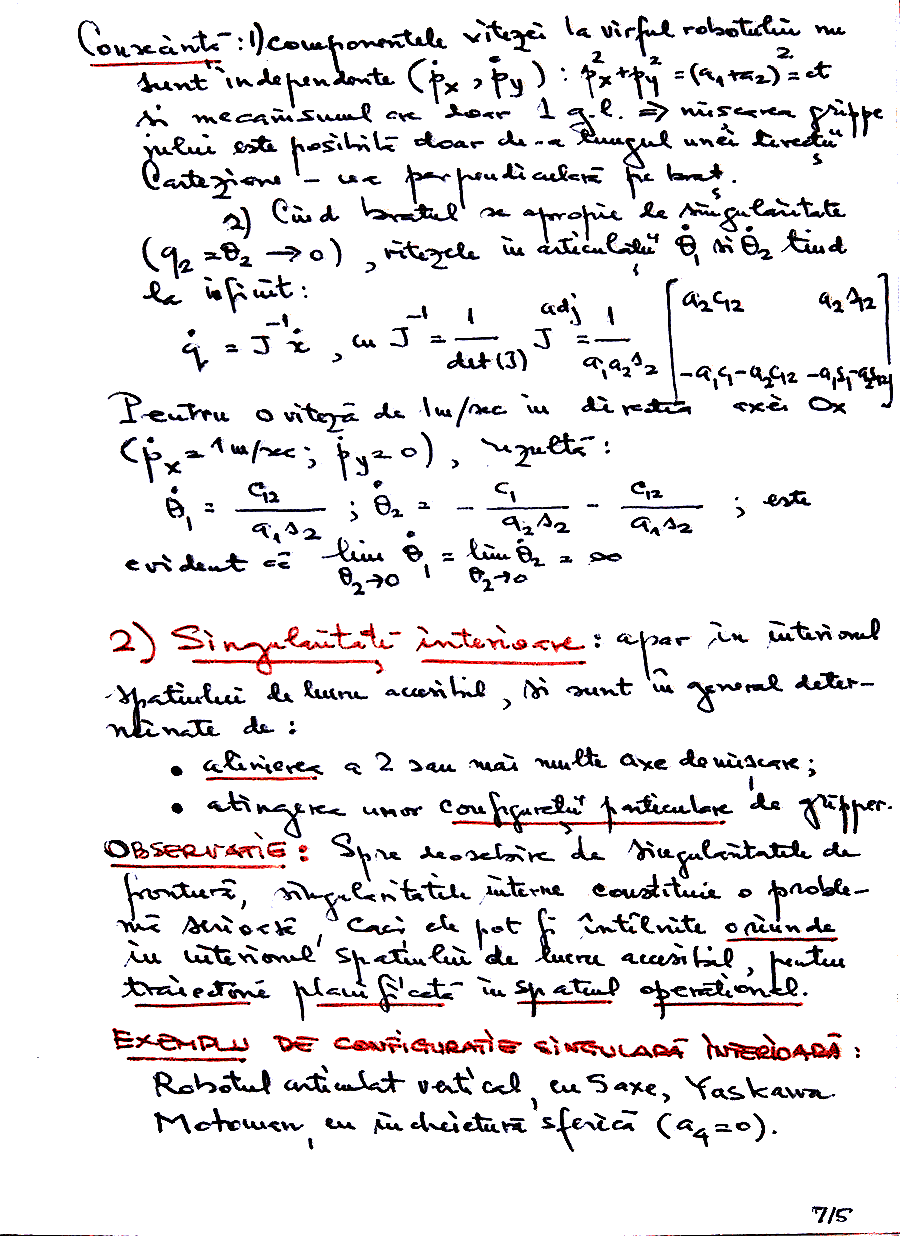 Consecință: 1) componentele vitezei la vîrful robotului nu
sunt independente (ṗx, ṗy) : px² + py² = (a1+a2)² = ct
și mecanismul are doar 1 g.l. ⇒ mișcarea grippe
rului este posibilă doar de-a lungul unei direcții
Carteziene – cea perpendiculară pe braț.
2) Cînd brațul se apropie de singularitate
(q2 = θ2 → 0), vitezele în articulații θ̇1 și θ̇2 tind
la infinit:
q̇ = J⁻¹ ẋ , cu J⁻¹ = 1/det(J) J^adj = 1/(a1a2s2) [a2c12 a2s12 ; -a1c1-a2c12 -a1s1-a2s12]
Pentru o viteză de 1m/sec în direcția axei Ox
(ṗx = 1m/sec; ṗy = 0), rezultă:
θ̇1 = c12/(a1s2) ; θ̇2 = - c1/(a2s2) - c12/(a1s2) ; este
evident că lim θ2→0 θ̇1 = lim θ2→0 θ̇2 = ∞
2) Singularități interioare : apar în interiorul
spațiului de lucru accesibil, și sunt în general deter-
minate de :
• alinierea a 2 sau mai multe axe de mișcare;
• atingerea unor configurații particulare de gripper.
OBSERVAȚIE : Spre deosebire de singularitățile de
frontieră, singularitățile interne constituie o proble-
mă serioasă, căci ele pot fi întîlnite oriunde
în interiorul spațiului de lucru accesibil, pentru
traiectorie planificată în spațiul operațional.
EXEMPLU DE CONFIGURAȚIE SINGULARĂ INTERIOARĂ :
Robotul articulat vertical, cu 5 axe, Yaskawa
Motoman, cu încheietură sferică (a4=0).
7/5